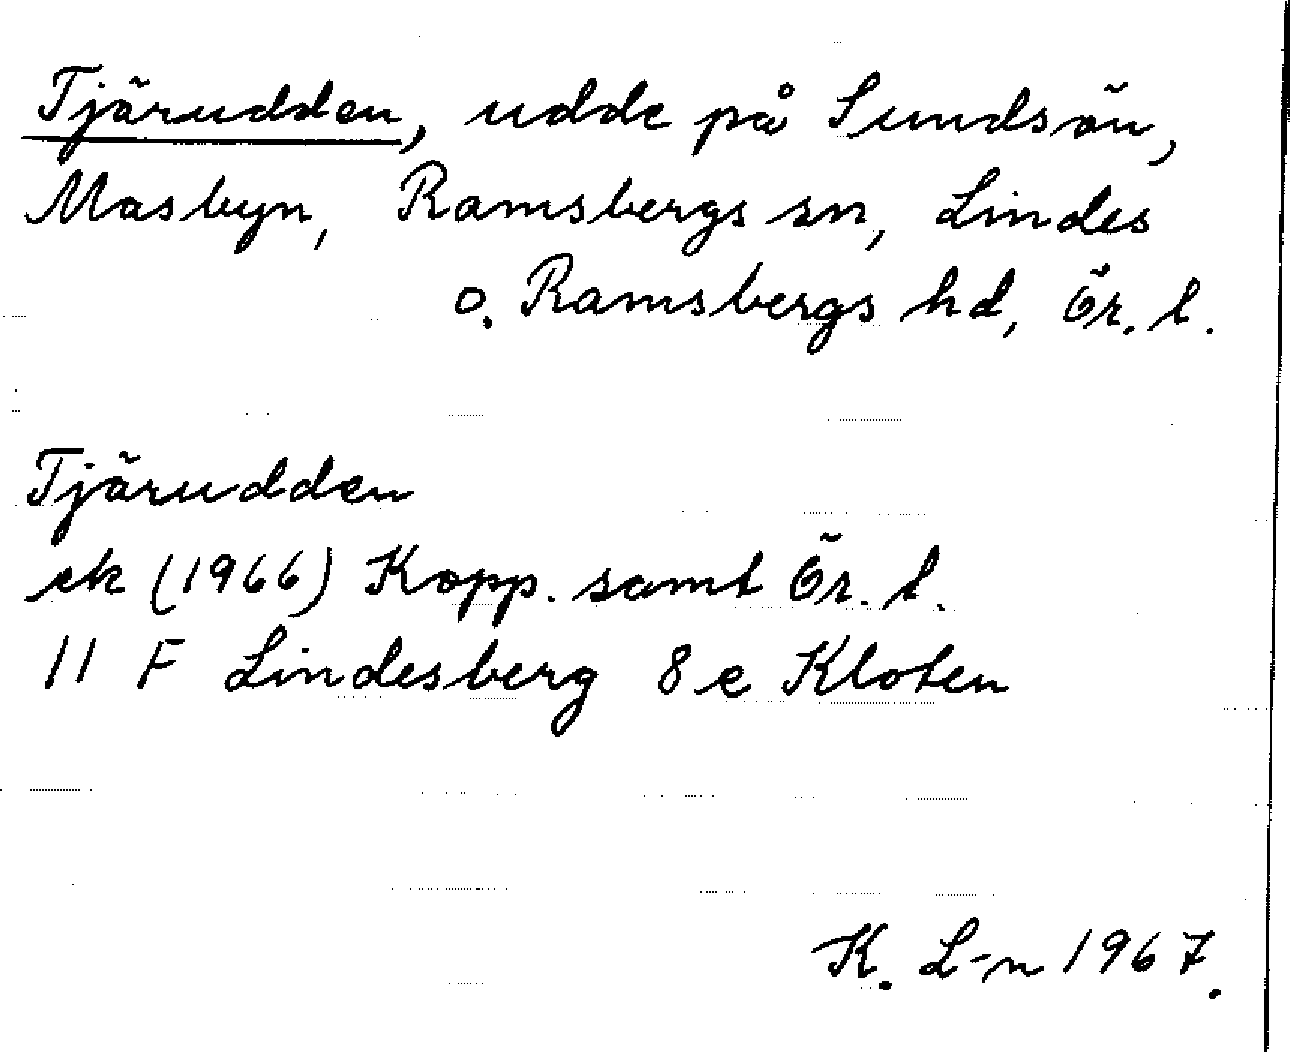 Tjärudden, udde på Sundsön,
Masbyn, Ramsbergs sn, Lindes
o. Ramsbergs hd, Ör. l.
Tjärudden
ek (1966) Kopp. samt Ör. l.
11 F Lindesberg 8 e Kloten
K. L-n 1967.